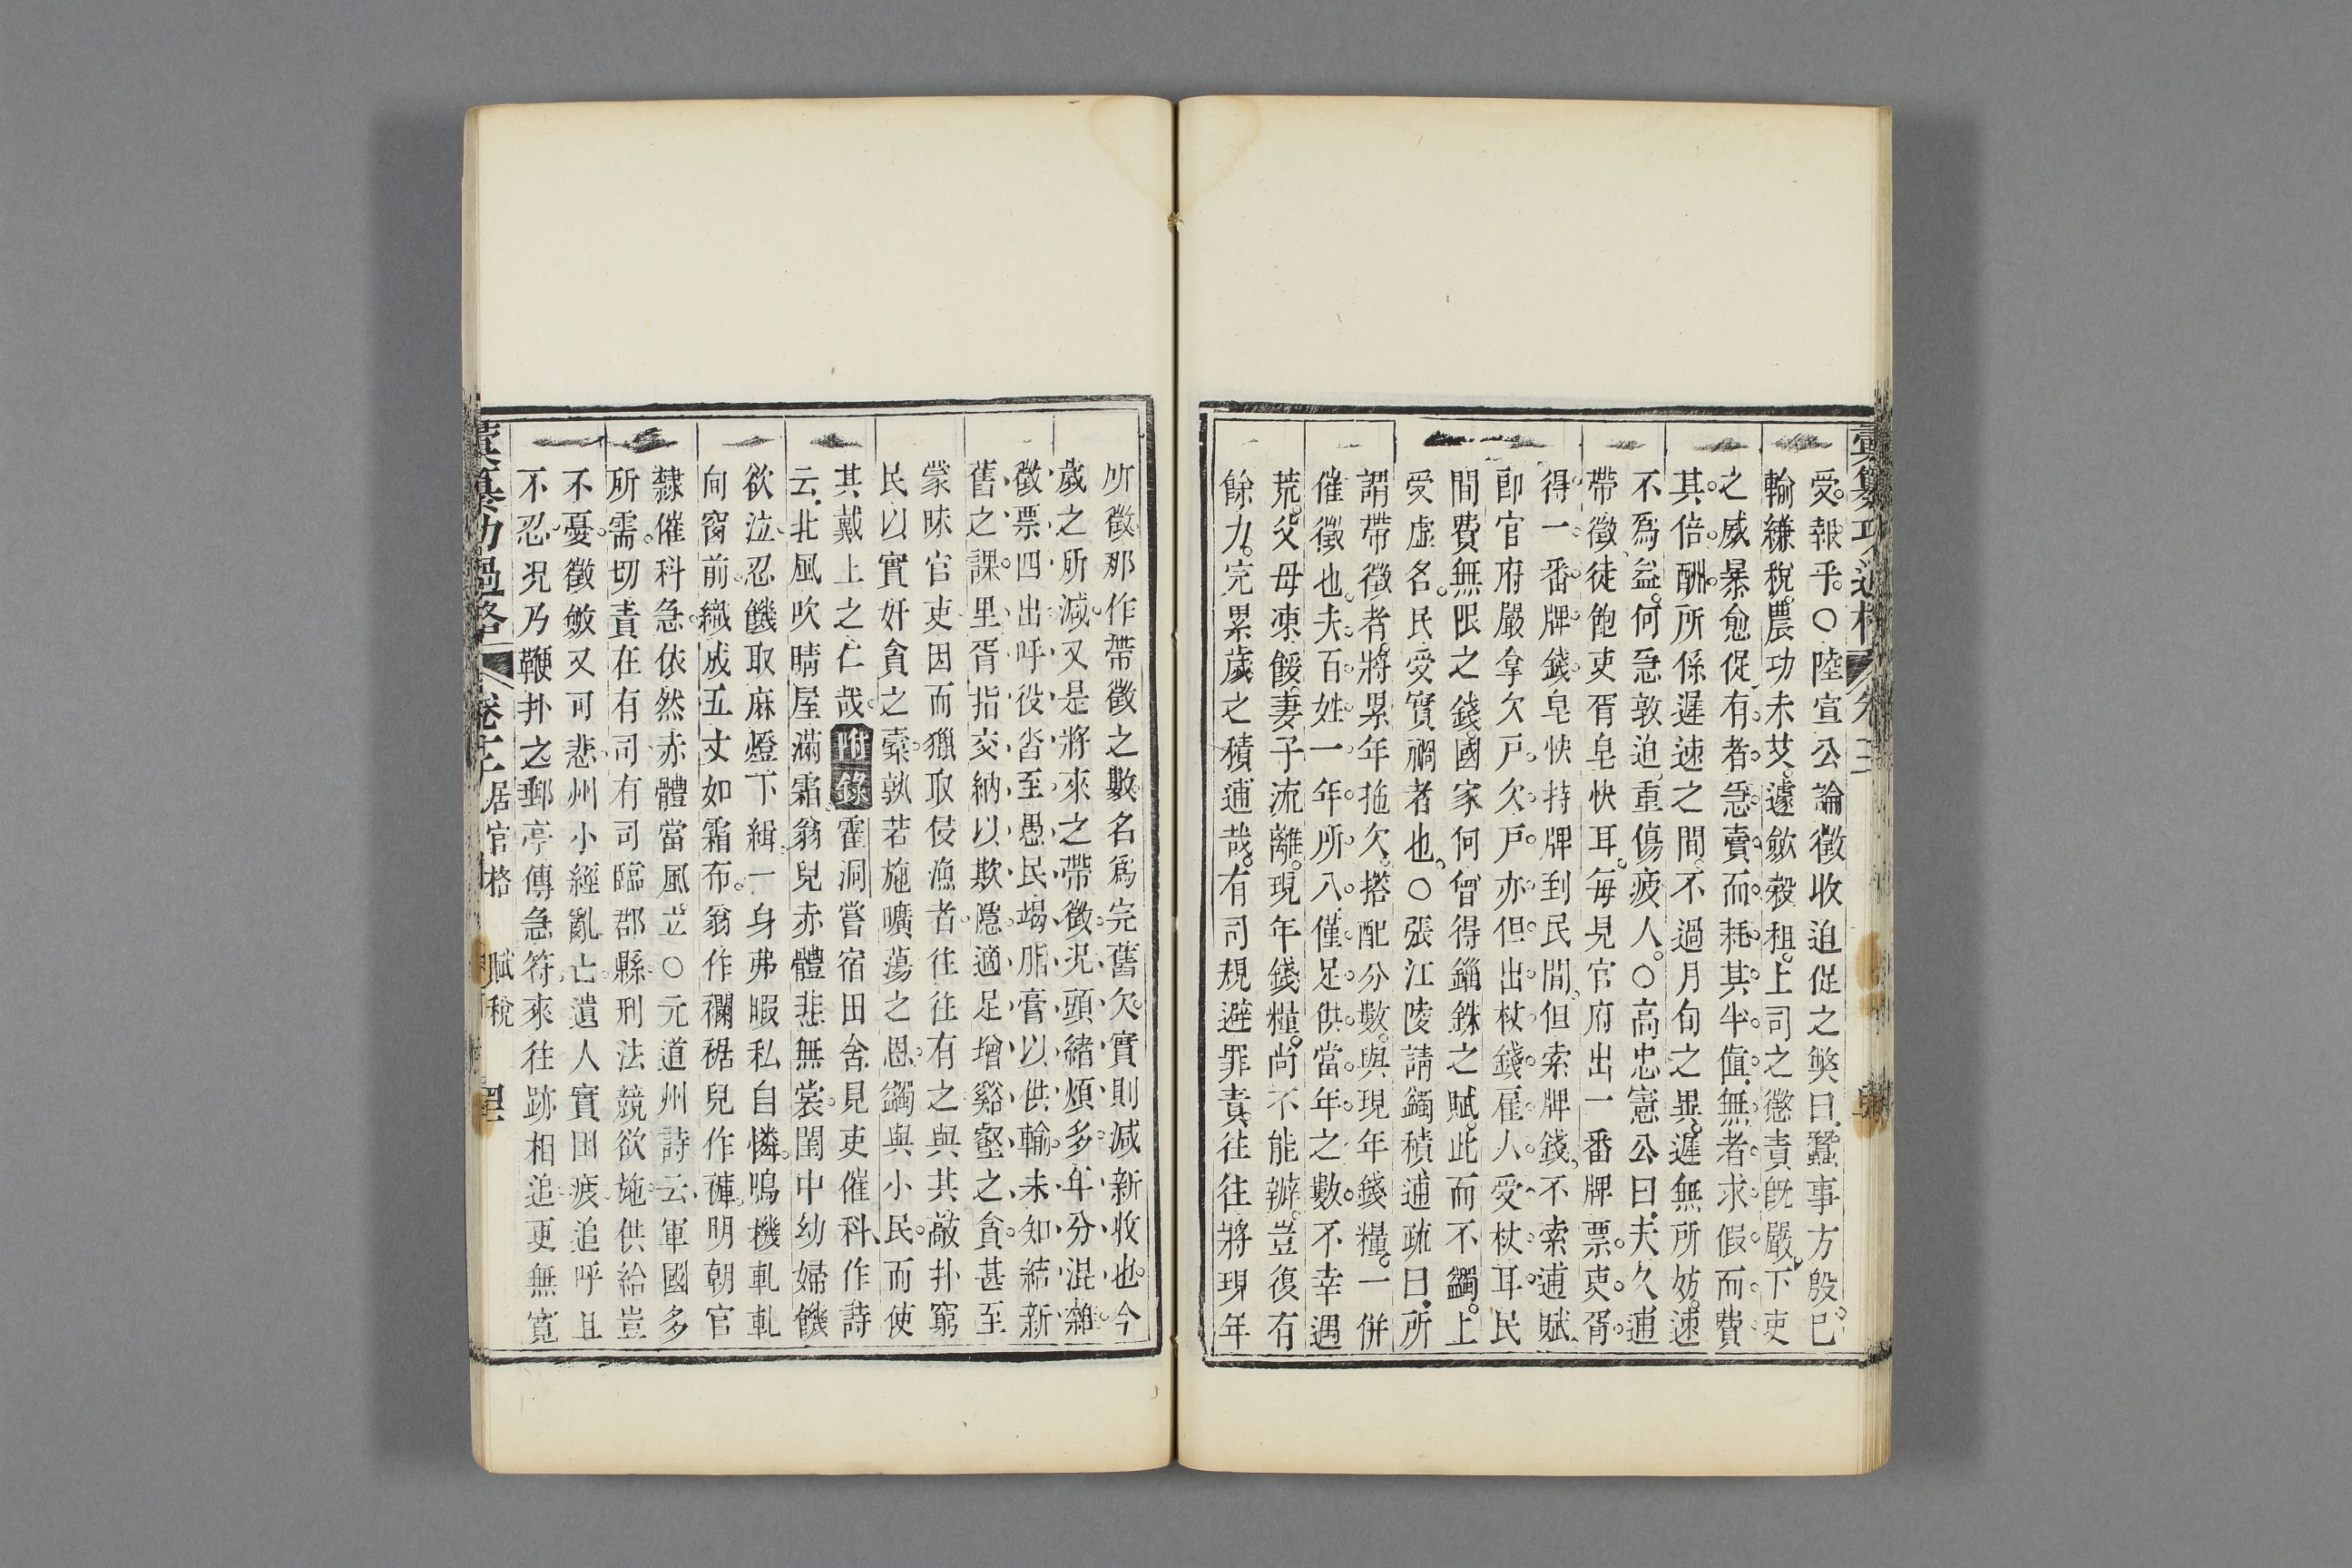 彙纂功過格
受報乎○陸宣公論徵收迫促之弊曰蠶事方殷已
輸縑稅農功未艾遽歛穀租上司之懲責旣嚴下吏
之威暴愈促有者急賣而耗其半値無者求假而費
其倍酬所係遲速之間不過月旬之異遲無所妨速
不爲益何急敦迫重傷疲人○高忠憲公曰夫久逋
帶徵徒飽吏胥皂快耳每見官府出一番牌票吏胥
得一番牌錢皂快持牌到民間但索牌錢不索逋賦
卽官府嚴拿欠戸欠戸亦但出杖錢雇人受杖耳民
間費無限之錢國家何曾得錙銖之賦此而不蠲上
受虛名民受實禍者也○張江陵請蠲積逋疏曰所
謂帶徵者將累年拖欠搭配分數與現年錢糧一併
催徵也夫百姓一年所入僅足供當年之數不幸遇
荒父母凍餒妻子流離現年錢糧尚不能辦豈復有
餘力完累歲之積逋哉有司規避罪責往往將現年
所徵那作帶徵之數名爲完舊欠實則減新收也今
歲之所減又是將來之帶徵況頭緒煩多年分混雜
徵票四出呼役沓至愚民竭脂膏以供輸未知結新
舊之課里胥指交納以欺隱適足增谿壑之貪甚至
蒙昧官吏因而獵取侵漁者往往有之與其敲扑窮
民以實奸貪之橐孰若施曠蕩之恩蠲與小民而使
其戴上之仁哉附錄霍洞嘗宿田舍見吏催科作詩
云北風吹晴屋滿霜翁兒赤體悲無裳閨中幼婦饑
欲泣忍饑取麻燈下緝一身弗暇私自憐鳴機軋軋
向窗前織成五丈如霜布翁作襴裾兒作褲明朝官
隸催科急依然赤體當風立○元道州詩云軍國多
所需切責在有司有司臨郡縣刑法競欲施供給豈
不憂徵斂又可悲州小經亂亡遺人實困疲追呼且
不忍况乃鞭扑之郵亭傳急符來往跡相追更無寬
彙纂功過格 卷三 居官格 賦稅